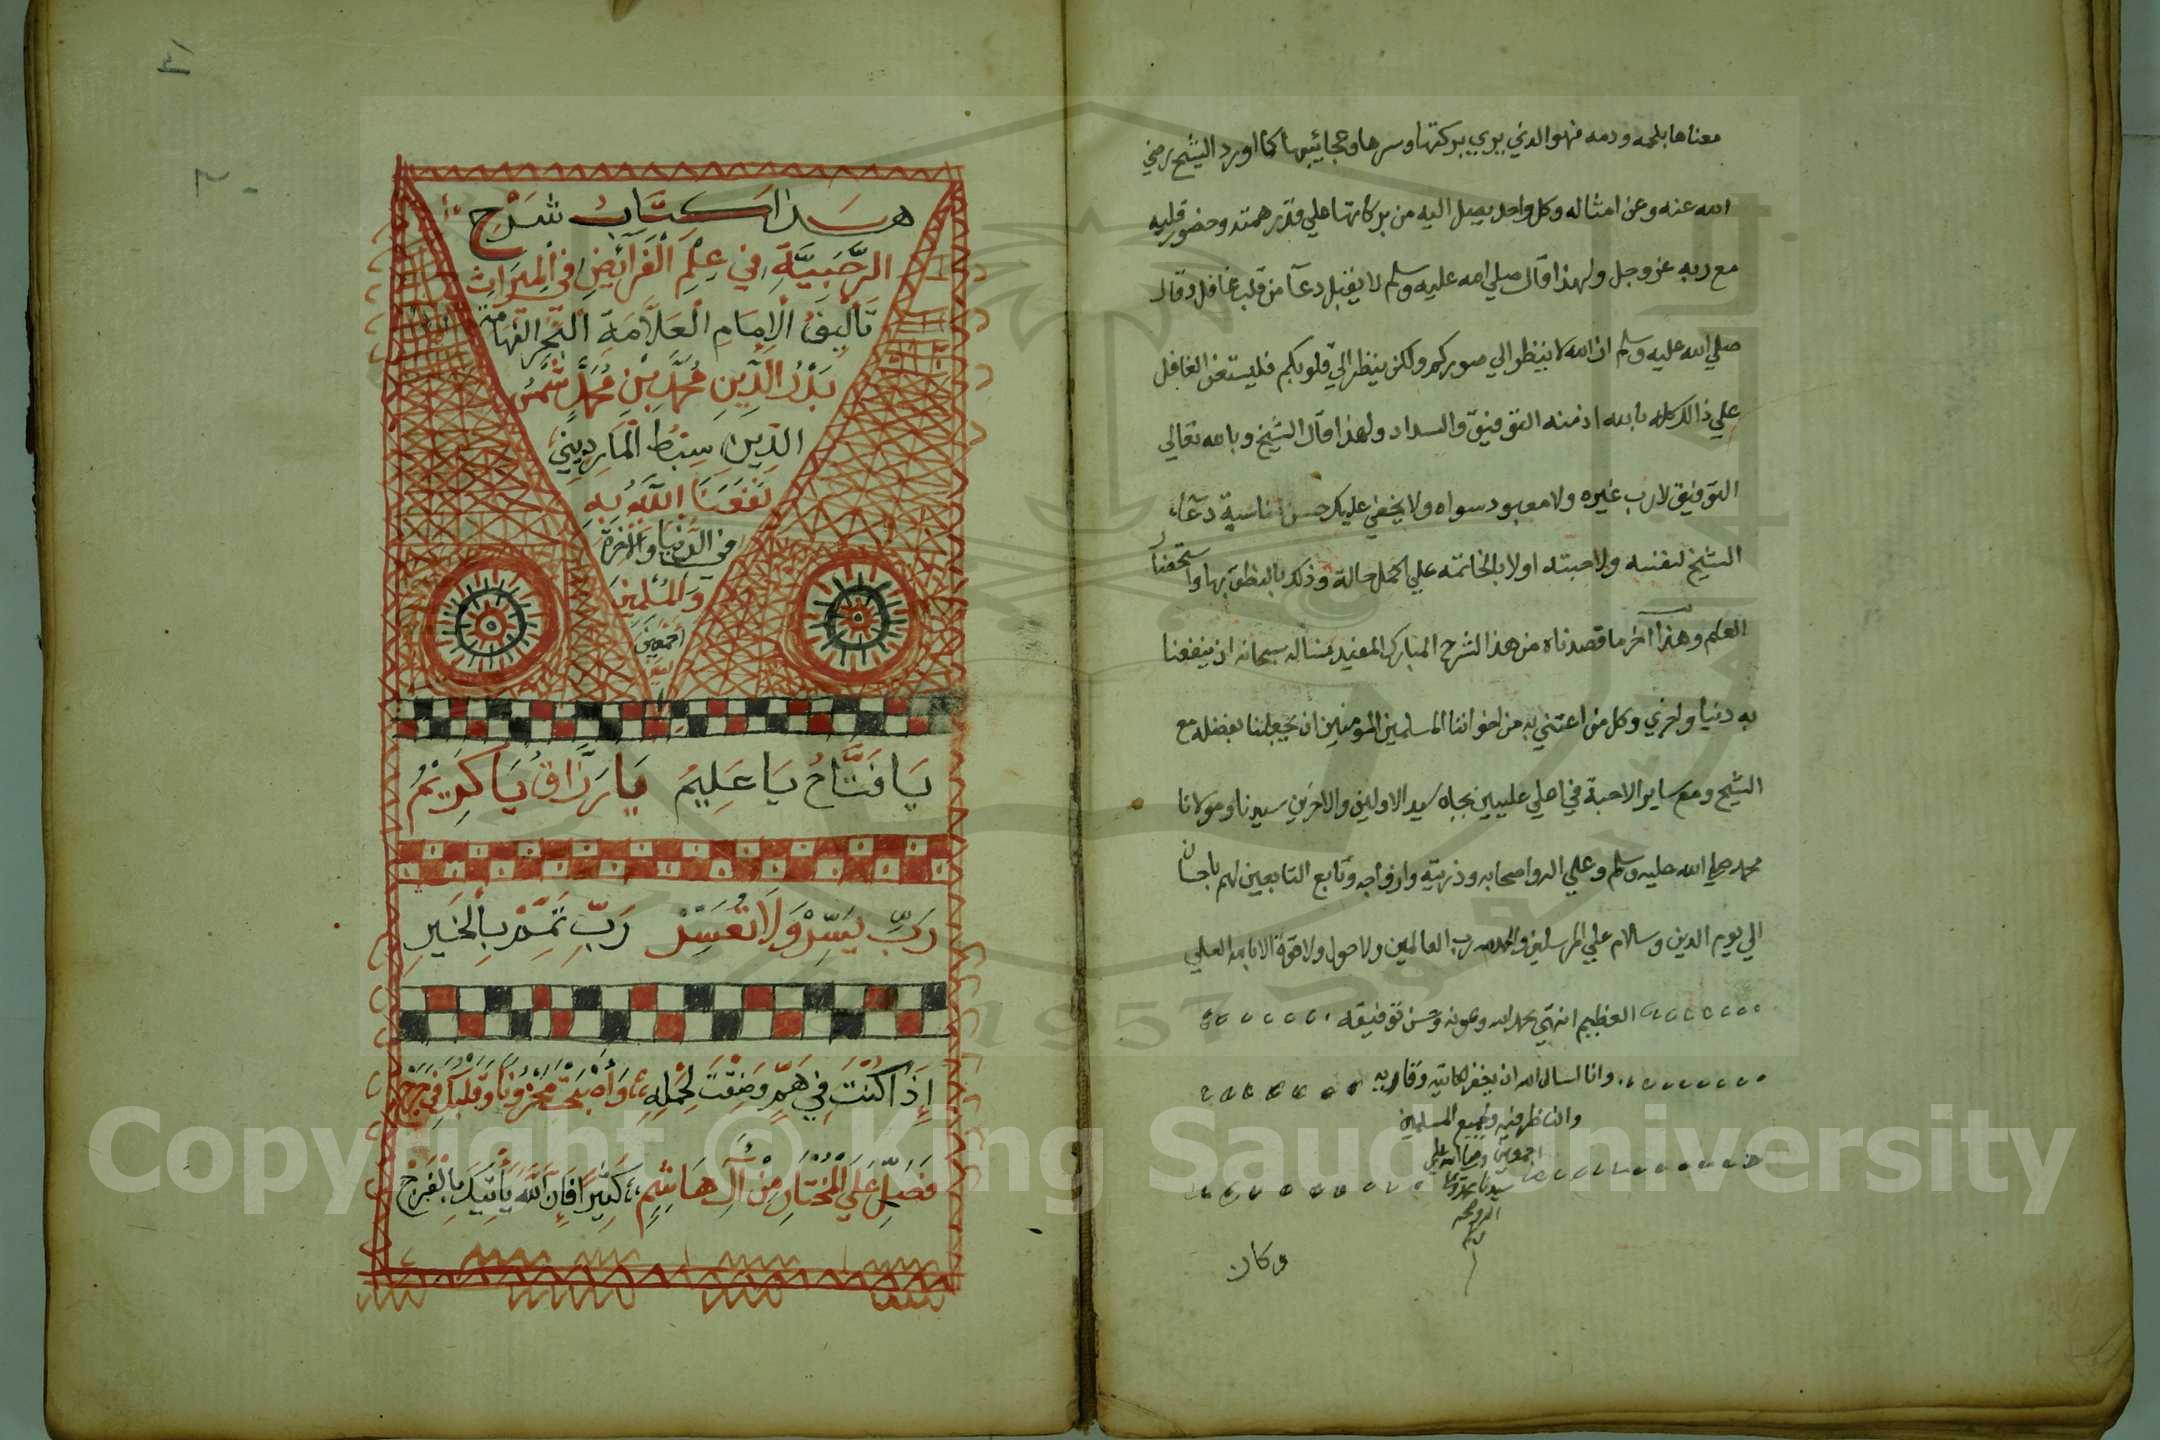 معناها بلحمه ودمه فهو الذي يري بركتها وسرها وعجائبها كما اورد الشيخ رضي
الله عنه وعن امثاله وكل واحد يصل اليه من بركاتها علي قدر همته وحضور قلبه
مع ربه عز وجل ولهذا قال صلي الله عليه وسلم لا يقبل دعآ من قلب غافل وقال
صلي الله عليه وسلم ان الله لا ينظر الي صوركم ولكن ينظر الي قلوبكم فليستعن الغافل
علي ذالك كله بالله اذ منه التوفيق والسداد ولهذا قال الشيخ وبالله تعالي
التوفيق لا رب غيره ولا معبود سواه ولا يخفي عليك حسن مناسبة دعآء
الشيخ لنفسه ولاحبته اولا بالخاتمه علي اكمل حالة وذلك بالنطق بها واستحضار
العلم وهذا آخر ما قصدناه من هذ الشرح المبارك المفيد فنساله سبحانه ان ينفعنا
به دنيا واخري وكل من اعتني به من اخواننا المسلمين المومنين ان يجعلنا بفضله مع
الشيخ ومع ساير الاحبة في اعلي عليين بجاه سيد الاولين والاخرين سيدنا ومولانا
محمد صلي الله عليه وسلم وعلي اله واصحابه وذريته وازواجه وتابع التابعين لهم باحسان
الي يوم الدين وسلام علي المرسلين والحمد لله رب العالمين ولا حول ولا قوة الا بالله العلي
العظيم انتهي بحمد الله وعونه وحسن توفيقه
وانا اسال الله ان يغفر لكاتبه وقاريه
والناظر فيه وجميع المسلمين
اجمعين وصلي الله علي
سيدنا محمد وعلي
اله وصحبه
وسلم
وكان
هذا كتاب شرح
الرَّحَبِيَّةِ في عِلْمِ الْفَرَآئِضِ في الْمِيرَاثِ
تَأْلِيفُ الْإِمَامِ الْعَلَّامَةِ الْبَحْرِ الفهامة
بَدْرُ الدِّينِ مُحَمَّدْ بْنِ مُحَمَّدْ شَمْسُ
الدِّينِ سِبْطُ الْمَارِدِينِي
نَفَعَنَا اللَّهُ بِهِ
في الدُّنْيَا وَالْآخِرَة
وَالْمُسْلِمِينَ
اجمعين
يَا فَتَّاحُ يَا عَلِيمُ يَا رَزَّاقُ يَا كَرِيْمُ
رَبِّ يَسِّرْ وَلَا تُعَسِّرْ رَبِّ تَمِّمْ بِالْخَيْرِ
إِذَا كُنْتَ فِي هَمٍّ وَضِقْتَ لِحَمْلِهِ وَأَصْبَحْتَ مَحْزُونًا وَقَلْبُكَ فِي حَرَجْ
فَصَلِّ عَلَي الْمُخْتَارِ مِنْ آلِ هَاشِمٍ كَثِيرًا فَإِنَّ اللَّهَ يَأْتِيكَ بِالْفَرَجْ
Copyright © King Saud University
1957